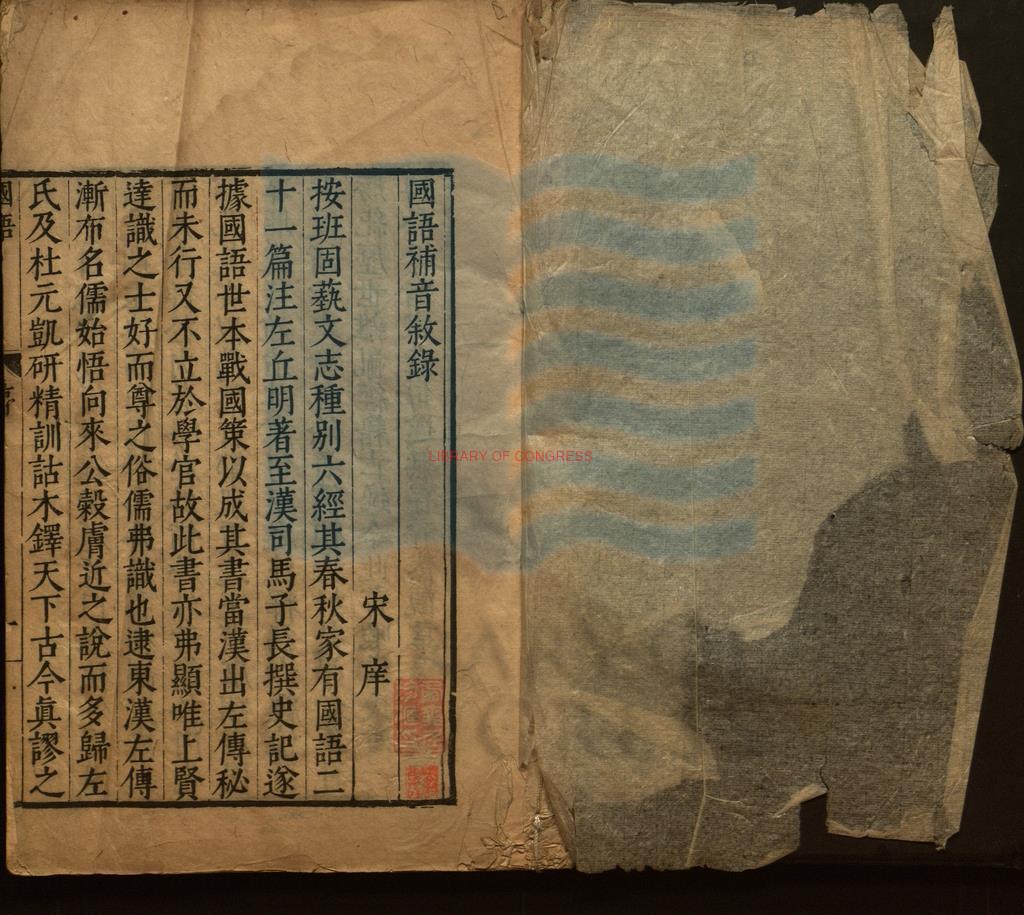 國語補音敘錄
宋庠
按班固藝文志種别六經其春秋家有國語二
十一篇注左丘明著至漢司馬子長撰史記遂
據國語世本戰國策以成其書當漢出左傳秘
而未行又不立於學官故此書亦弗顯唯上賢
達識之士好而尊之俗儒弗識也逮東漢左傳
漸布名儒始悟向來公糓膚近之說而多歸左
氏及杜元凱研精訓詁木鐸天下古今眞謬之
國語
LIBRARY OF CONGRESS